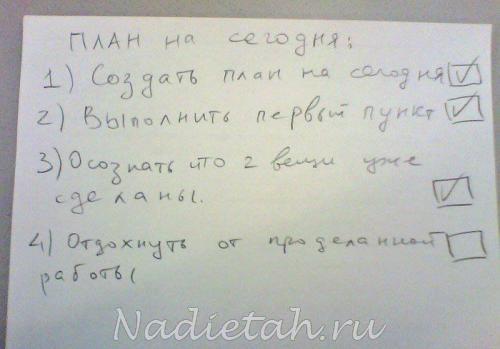 ПЛАН на сегодня:
1) Создать план на сегодня
2) Выполнить первый пункт
3) Осознать что 2 вещи уже
сделаны.
4) Отдохнуть от проделанной
работы
Nadietah.ru